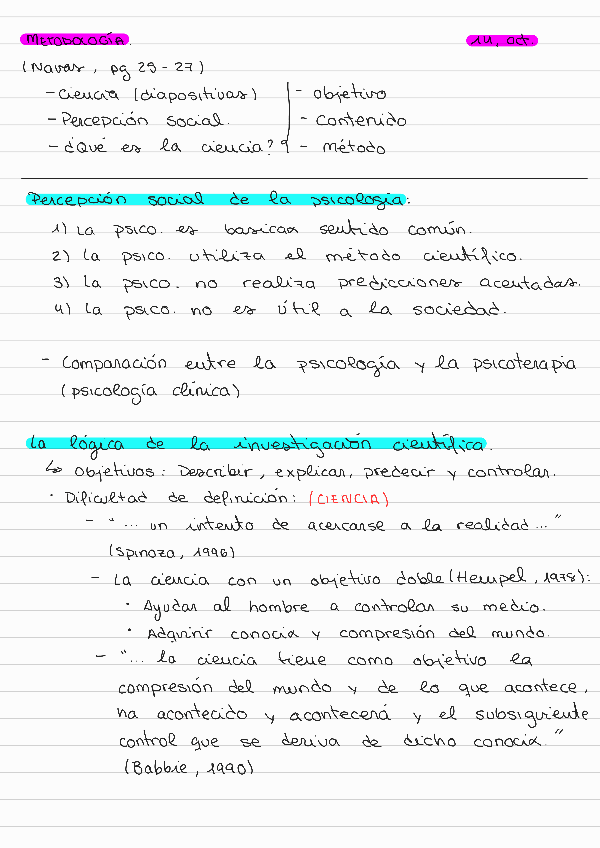 METODOLOGÍA. 14, oct
(Navas, pg 25-27)
- Ciencia (diapositivas) - objetivo
- Percepción social. - Contenido
- ¿Qué es la ciencia? - método
Percepción social de la psicología:
1) La psico. es basicaa sentido común.
2) La psico. utiliza el método científico.
3) La psico. no realiza predicciones acertadas.
4) La psico. no es útil a la sociedad.
- Comparación entre la psicología y la psicoterapia
(psicología clínica)
La lógica de la investigación científica.
↳ Objetivos: Describir, explicar, predecir y controlar.
· Dificultad de definición: (CIENCIA)
- "... un intento de acercarse a la realidad..."
(Spinoza, 1996)
- La ciencia con un objetivo doble (Hempel, 1978):
· Ayudar al hombre a controlar su medio.
· Adquirir conocix y compresión del mundo.
- "... la ciencia tiene como objetivo la
compresión del mundo y de lo que acontece,
ha acontecido y acontecerá y el subsiguiente
control que se deriva de dicho conocix."
(Babbie, 1990)